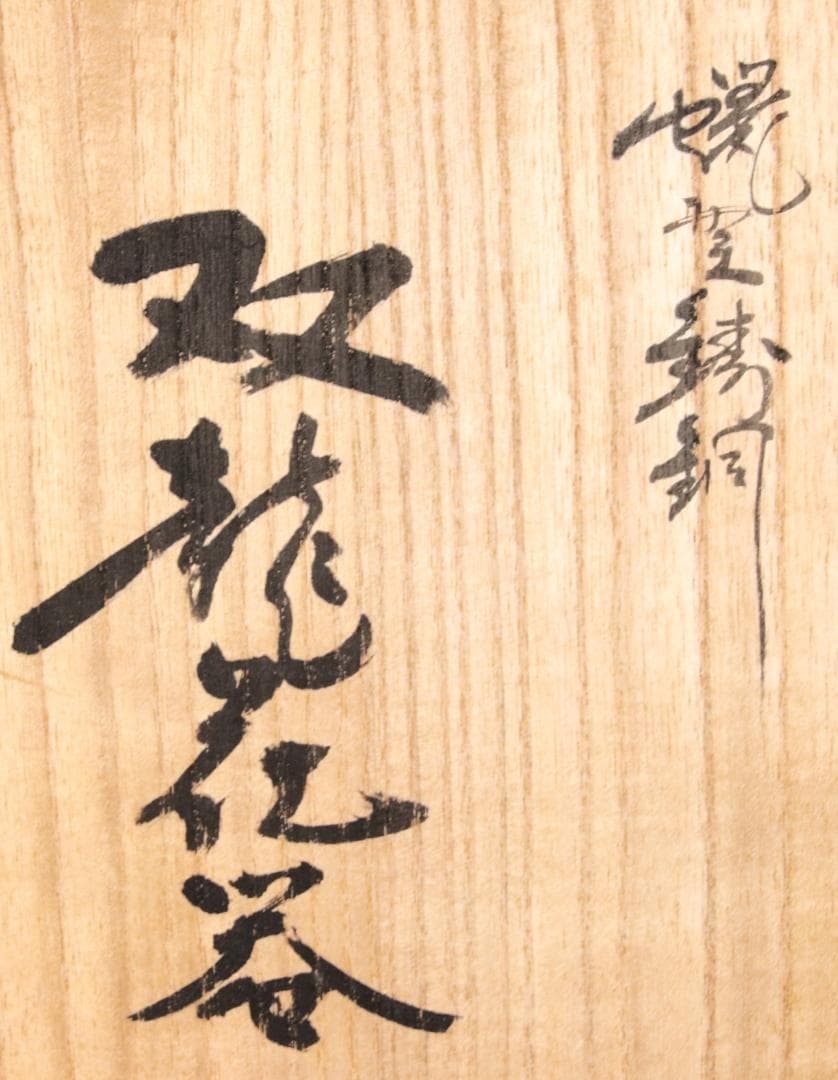 蝋型鋳銅
双龍花器